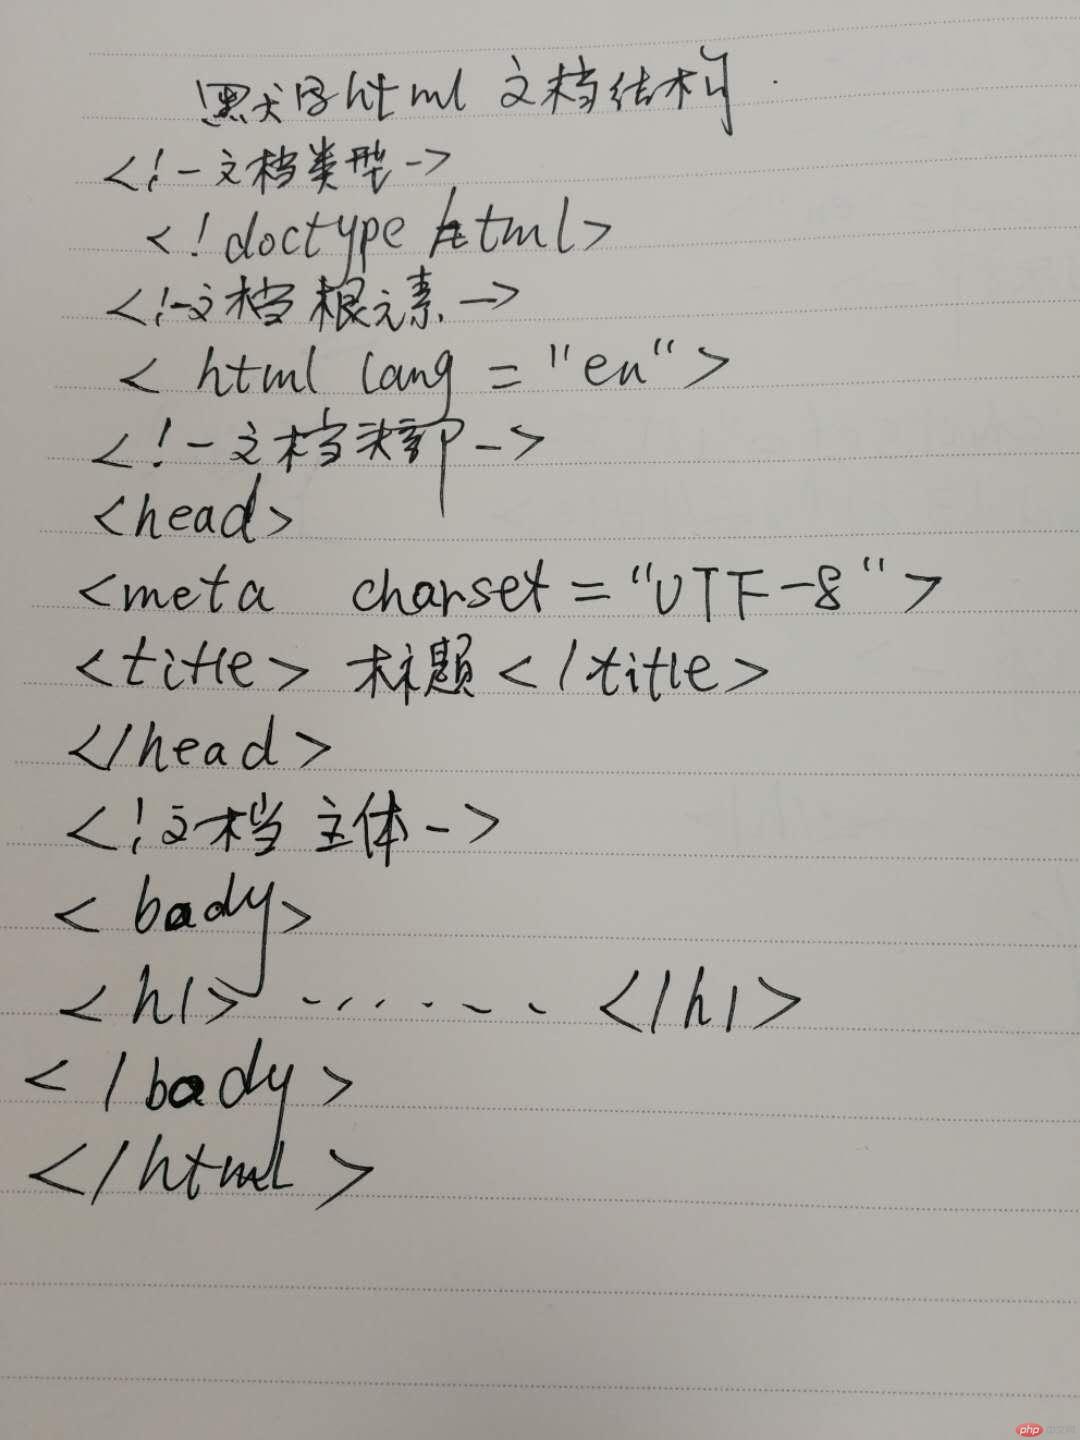 默写html 文档结构.
<!-文档类型->
<!doctype html>
<!-文档 根元素->
< html lang = "en">
<!-文档头部->
<head>
<meta charset = "UTF-8">
<title> 标题</title>
</head>
<!文档 主体->
< body>
<h1> ....... </h1>
</body>
</html>
php